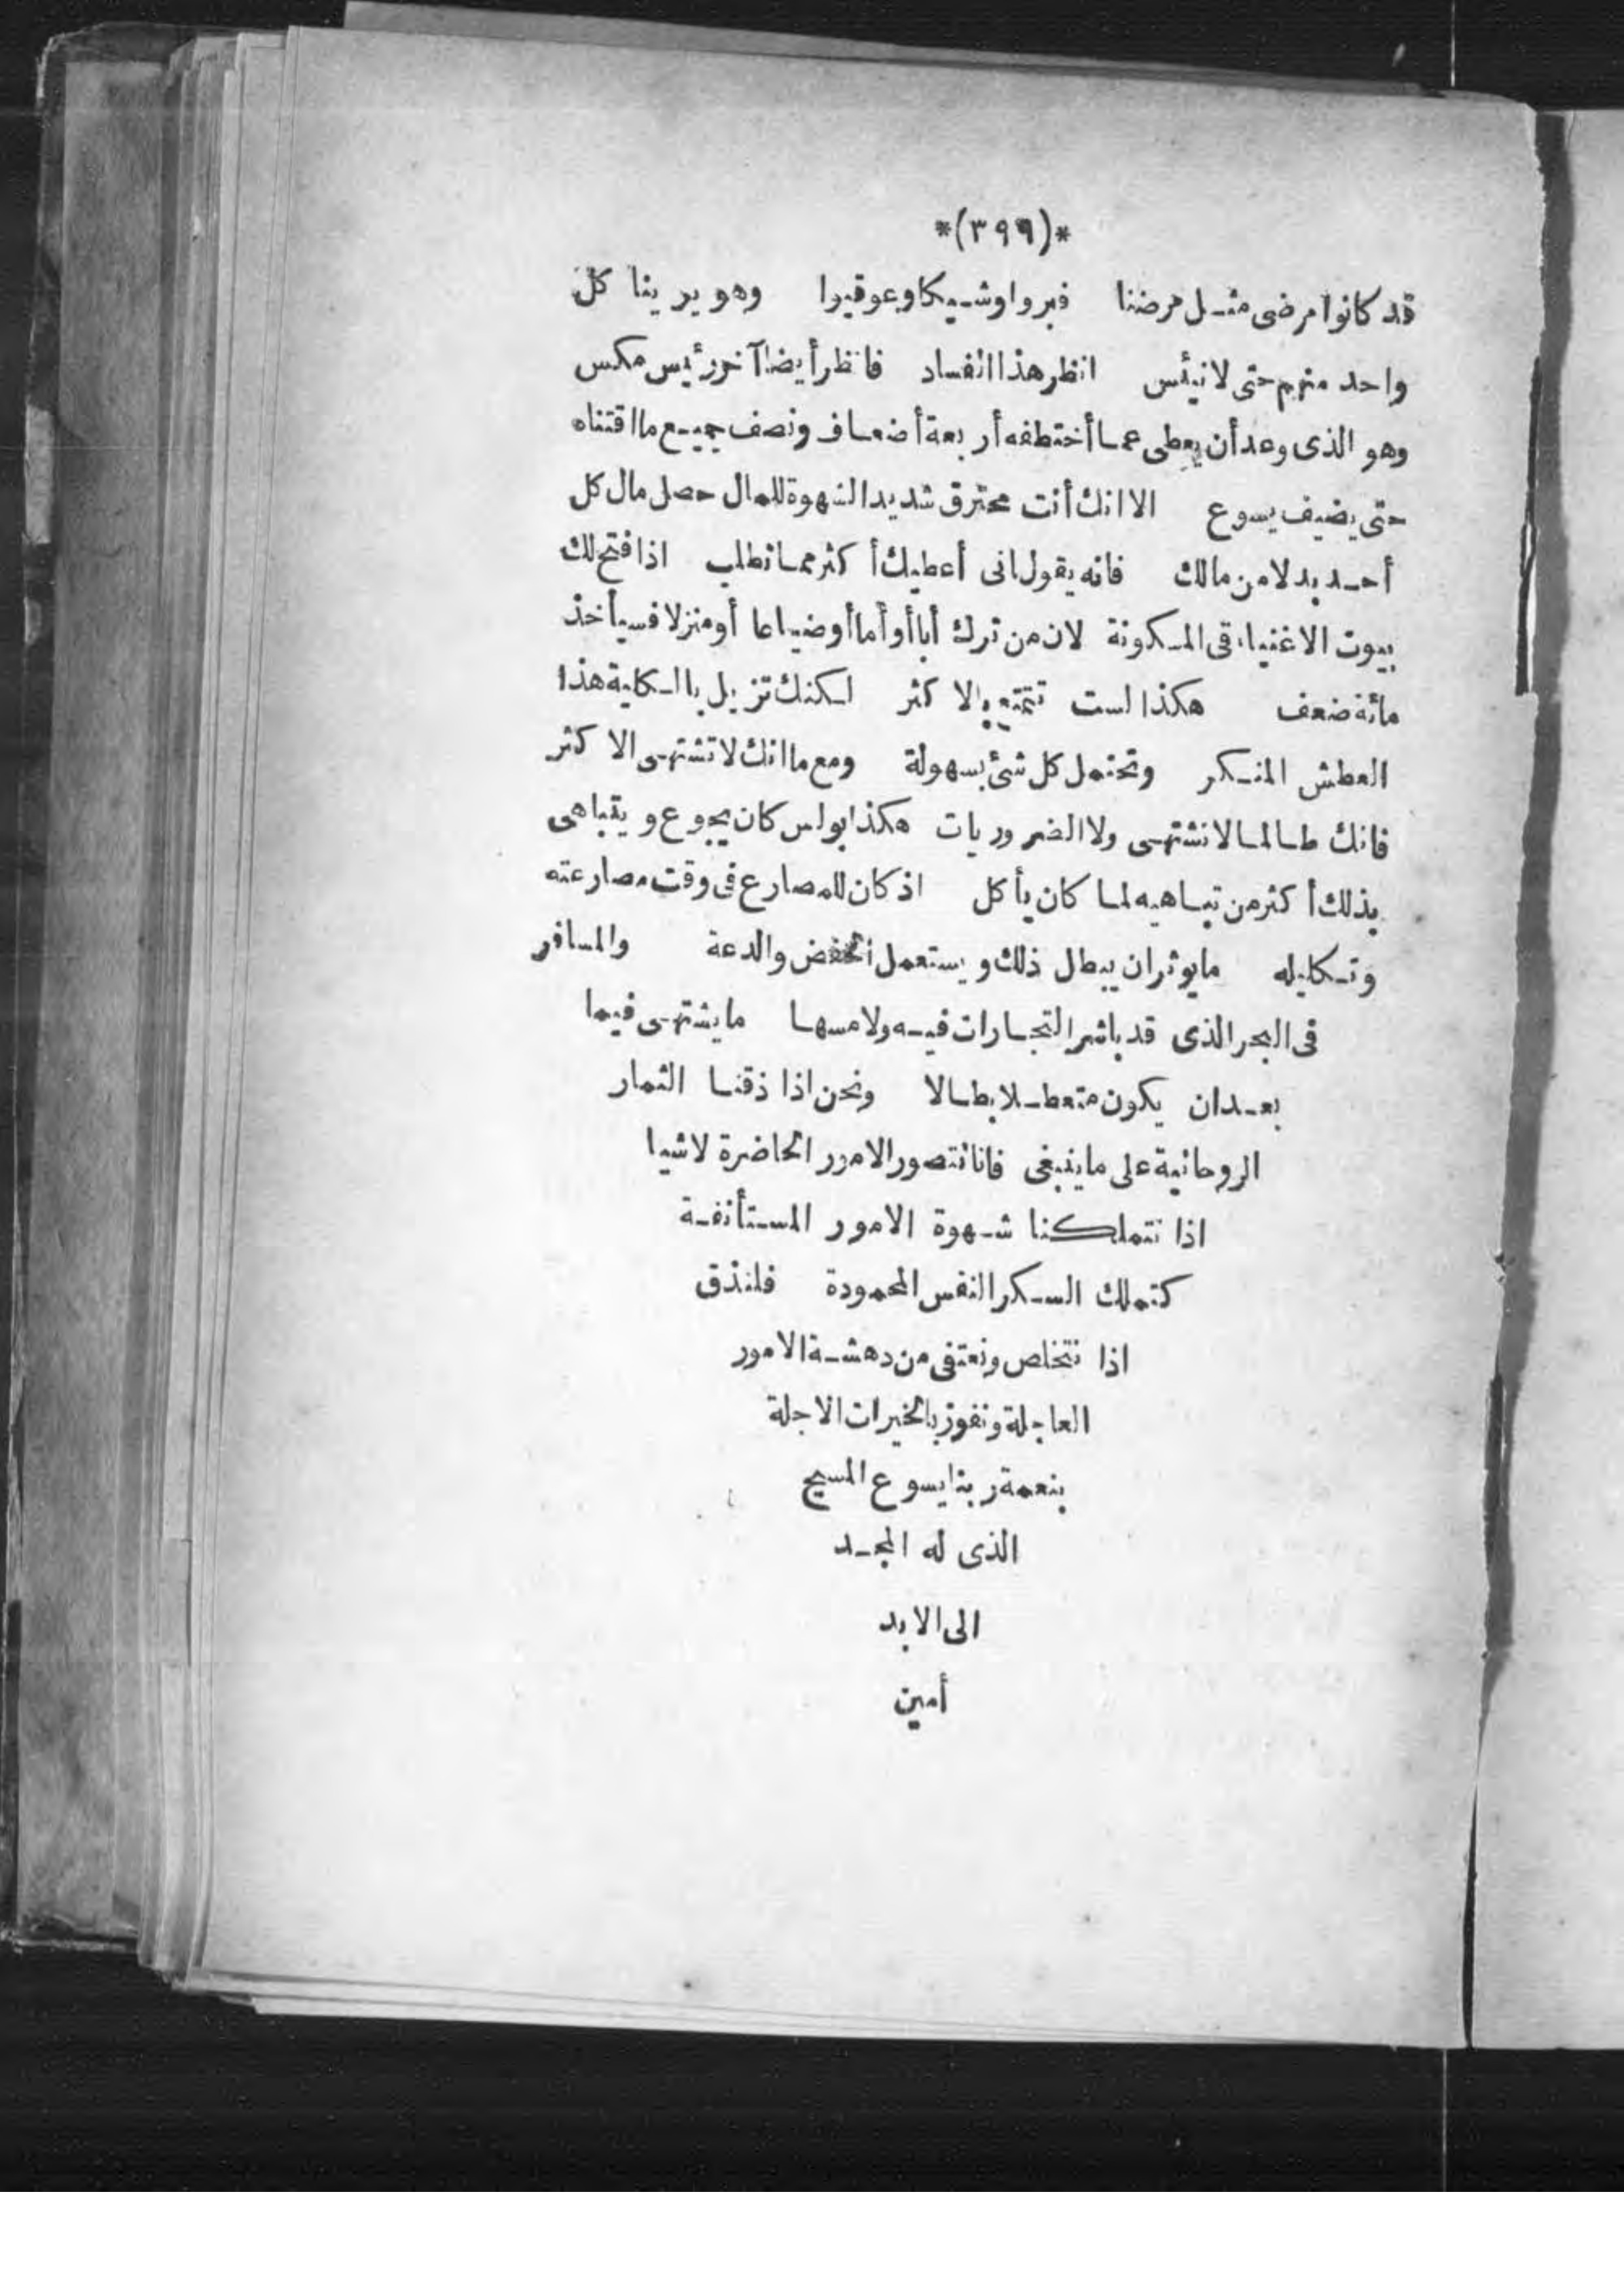 *(٣٩٩)*
قد كانوا مرضى مثل مرضنا فبروا وشيكا وعوقبوا وهو يرينا كل
واحد منهم حتى لا نيئس انظر هذا انفساد فانظر أيضا آخر رئيس مكس
وهو الذى وعد أن يعطى عما أختطفه أربعة أضعاف ونصف جميع ما اقتناه
حتى يضيف يسوع الا انك أنت محترق شديد الشهوة للمال حصل مال كل
أحد بدلا من مالك فانه يقول انى أعطيك أكثر مما تطلب اذا فتح لك
بيوت الاغنياء فى المسكونة لان من ترك أبا أو أما أو ضياعا أو منزلا فسيأخذ
مائة ضعف هكذا لست تتمتع بالاكثر لكنك تزيل بالكلية هذا
العطش المنكر وتحتمل كل شئ بسهولة ومع ما انك لا تشتهى الاكثر
فانك طالما لا تشتهى ولا الضروريات هكذا بولس كان يجوع ويتباهى
بذلك أكثر من تباهيه لما كان يأكل اذ كان للمصارع فى وقت مصارعته
وتكليله ما يوثر ان يبطل ذلك ويستعمل الخفض والدعة والمسافر
فى البحر الذى قد باشر التجارات فيه ولامسها ما يشتهى فيما
بعد ان يكون متعطلا بطالا ونحن اذا ذقنا الثمار
الروحانية على ما ينبغى فانا نتصور الامور الحاضرة لا شيا
اذا نتملكنا شهوة الامور المستأنفة
كتملك السكر النفس المحمودة فلنذق
اذا نتخلص ونعتفى من دهشة الامور
العاجلة ونفوز بالخيرات الاجلة
بنعمة ربنا يسوع المسيح
الذى له المجد
الى الابد
أمين